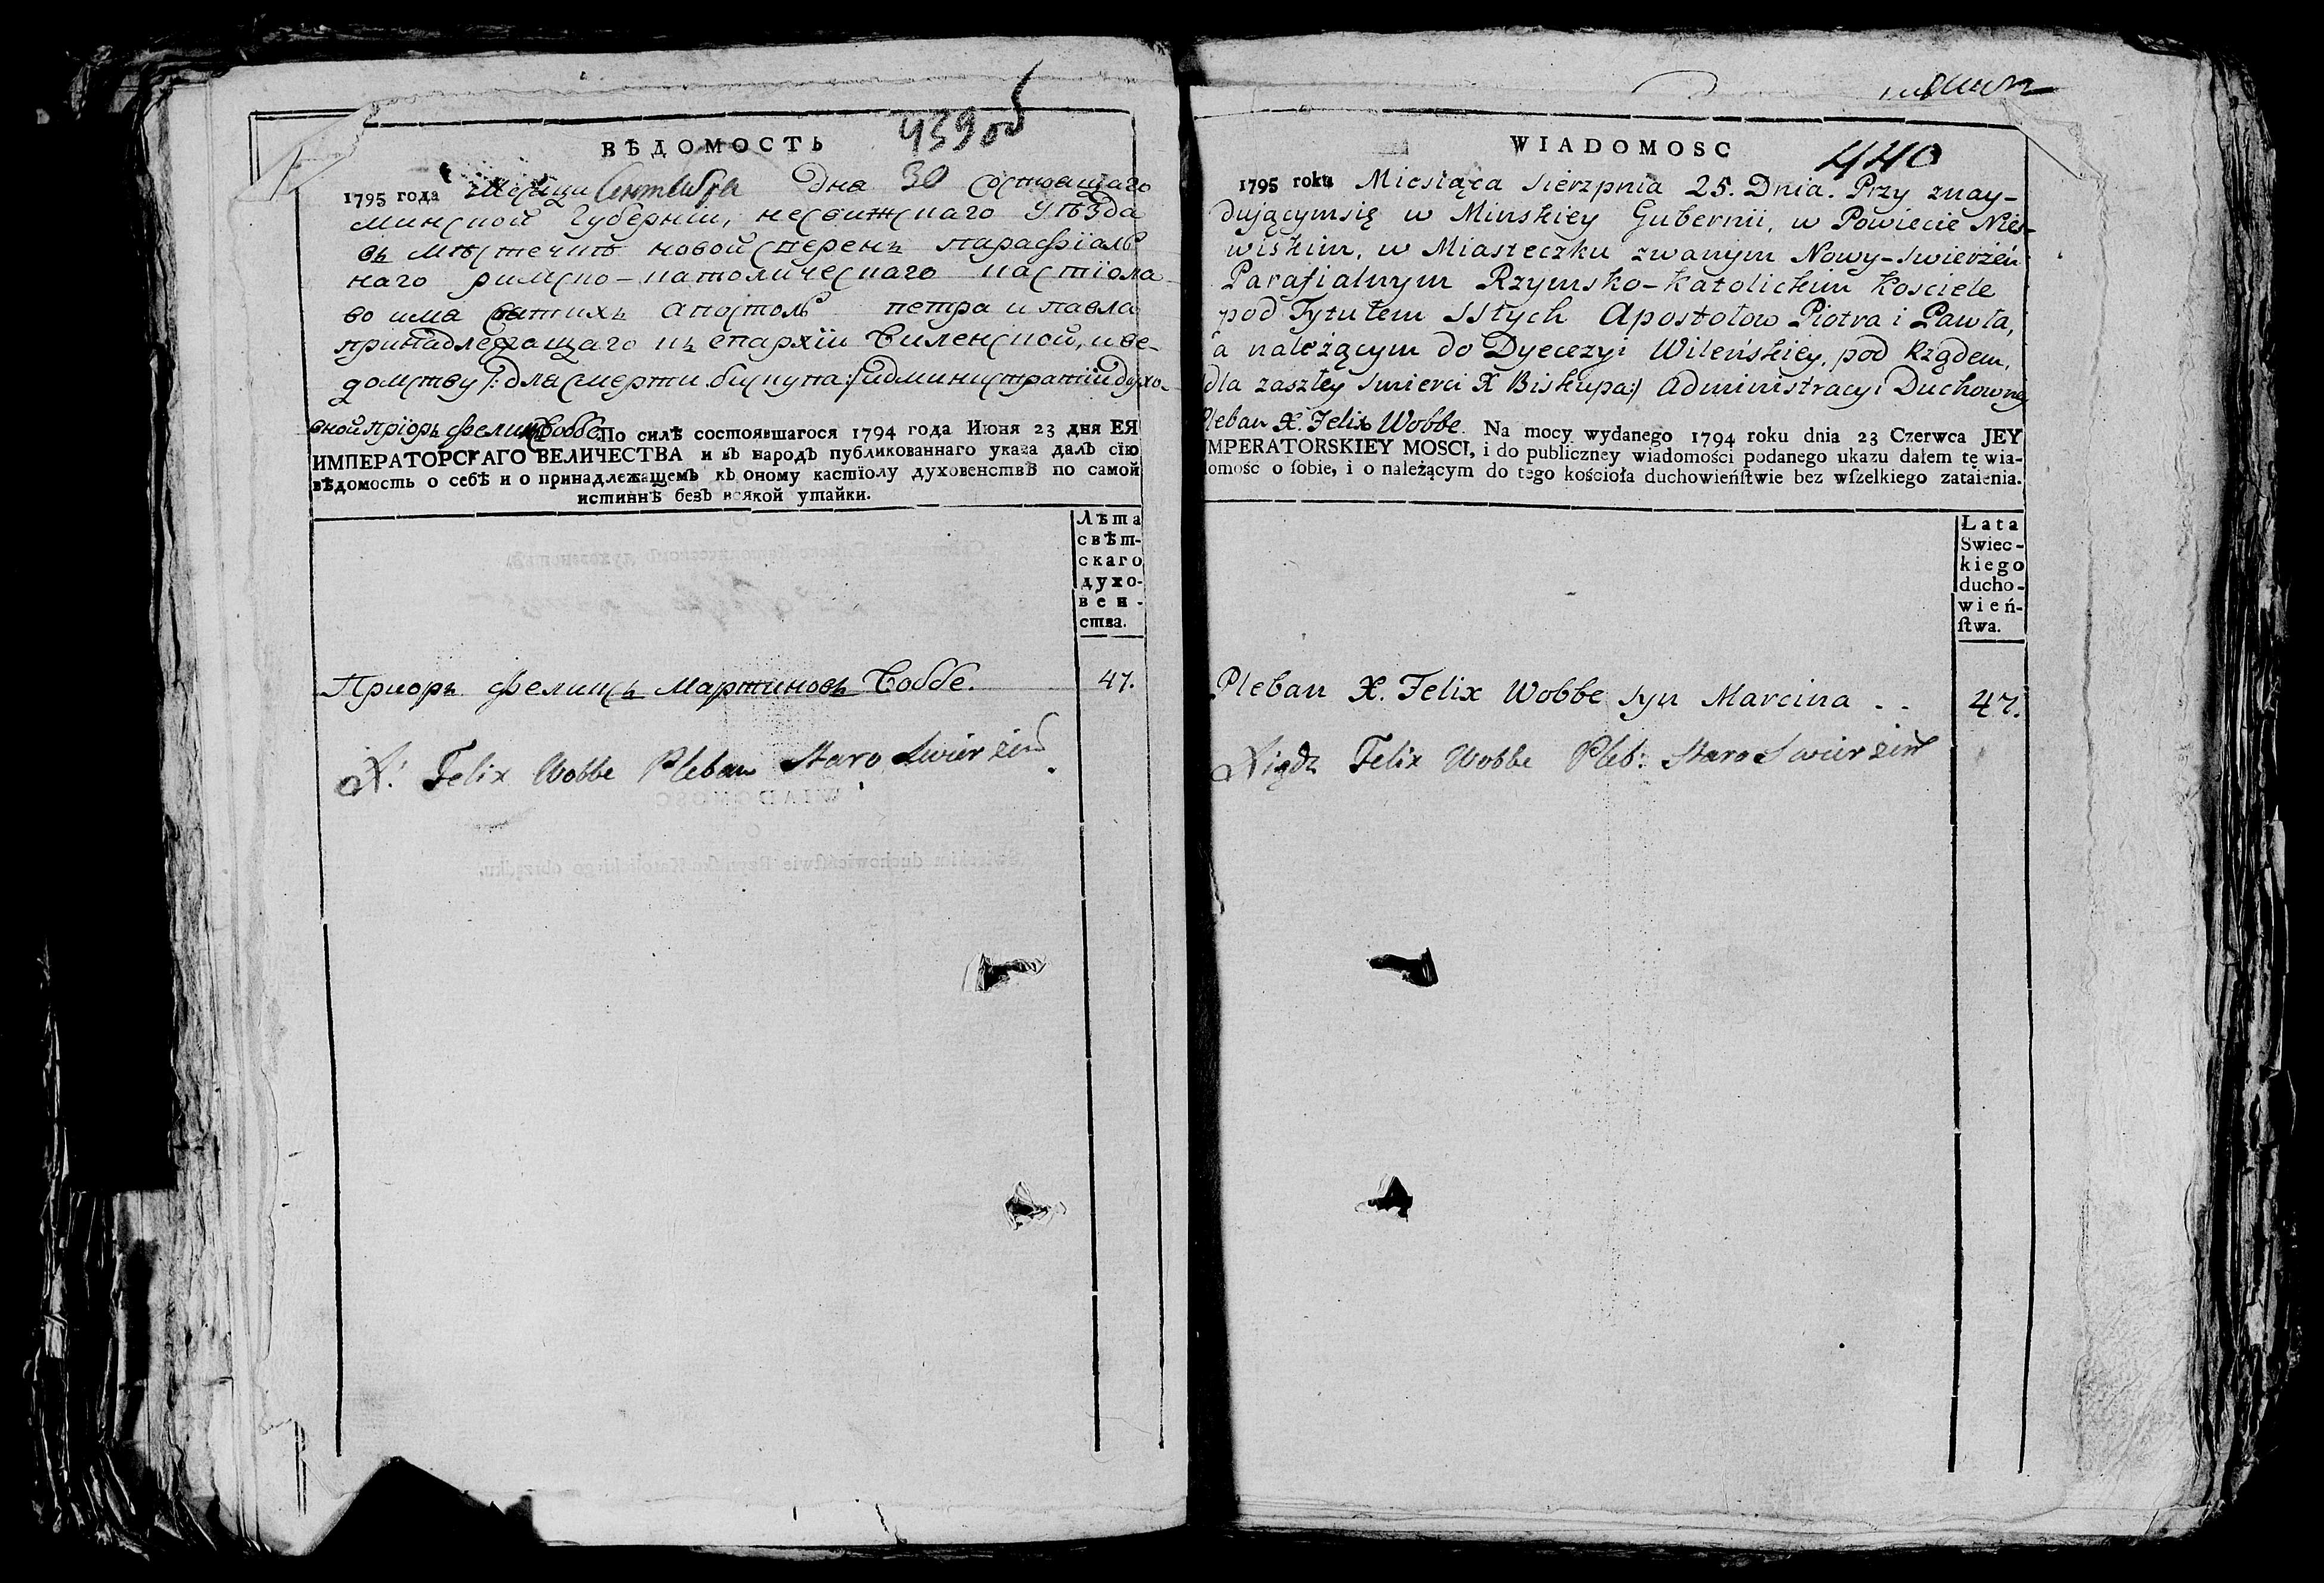 ВѢДОМОСТЬ 439 об
1795 года Месяца Сентября дня 30 состоящаго
минской Губерніи, несвижскаго уѣзда
въ мѣстечкѣ новой сверенъ парафіаль
наго римско-католическаго кастіола
во имя святихъ апостолъ петра и павла
принадлежащаго къ епархіи виленской, и ве-
домству /: для смерти бискупа :/ администратіи духо-
вной пріоръ феликсъ Воббе. По силѣ состоявшагося 1794 года Июня 23 дня ЕЯ
ИМПЕРАТОРСКАГО ВЕЛИЧЕСТВА и въ народъ публикованнаго указа далъ сію
вѣдомость о себѣ и о принадлежащемъ къ оному кастіолу духовенствѣ по самой
истиннѣ безъ всякой утайки.
Лѣта
свѣт-
скаго
духо-
вен-
ства.
Приоръ феликсъ мартиновъ Воббе. 47.
X. Felix Wobbe Pleban Staro Swierżeń.
WIADOMOSC 440
1795 roku Miesiąca Sierzpnia 25. Dnia. Przy znay-
dującymsię w Minskiey Gubernii, w Powiecie Nies-
wiskim, w Miasteczku zwanym Nowy-Swierżeń
Parafialnym Rzymsko-Katolickim Kosciele
pod Tytułem SStych Apostołow Piotra i Pawła,
a należącym do Dyecezyi Wileńskiey, pod Rządem,
dla zaszłey Smierci X Biskupa:/ Administracyi Duchowney
Pleban X. Felix Wobbe. Na mocy wydanego 1794 roku dnia 23 Czerwca JEY
IMPERATORSKIEY MOSCI, i do publiczney wiadomości podanego ukazu dałem tę wia-
domość o ſobie, i o należącym do tego kościoła duchowieńſtwie bez wſzelkiego zataienia.
Lata
Swiec-
kiego
ducho-
wień-
ſtwa.
Pleban X. Felix Wobbe Syn Marcina . . 47.
Xiądz Felix Wobbe Pleb: Staro Swierżeń